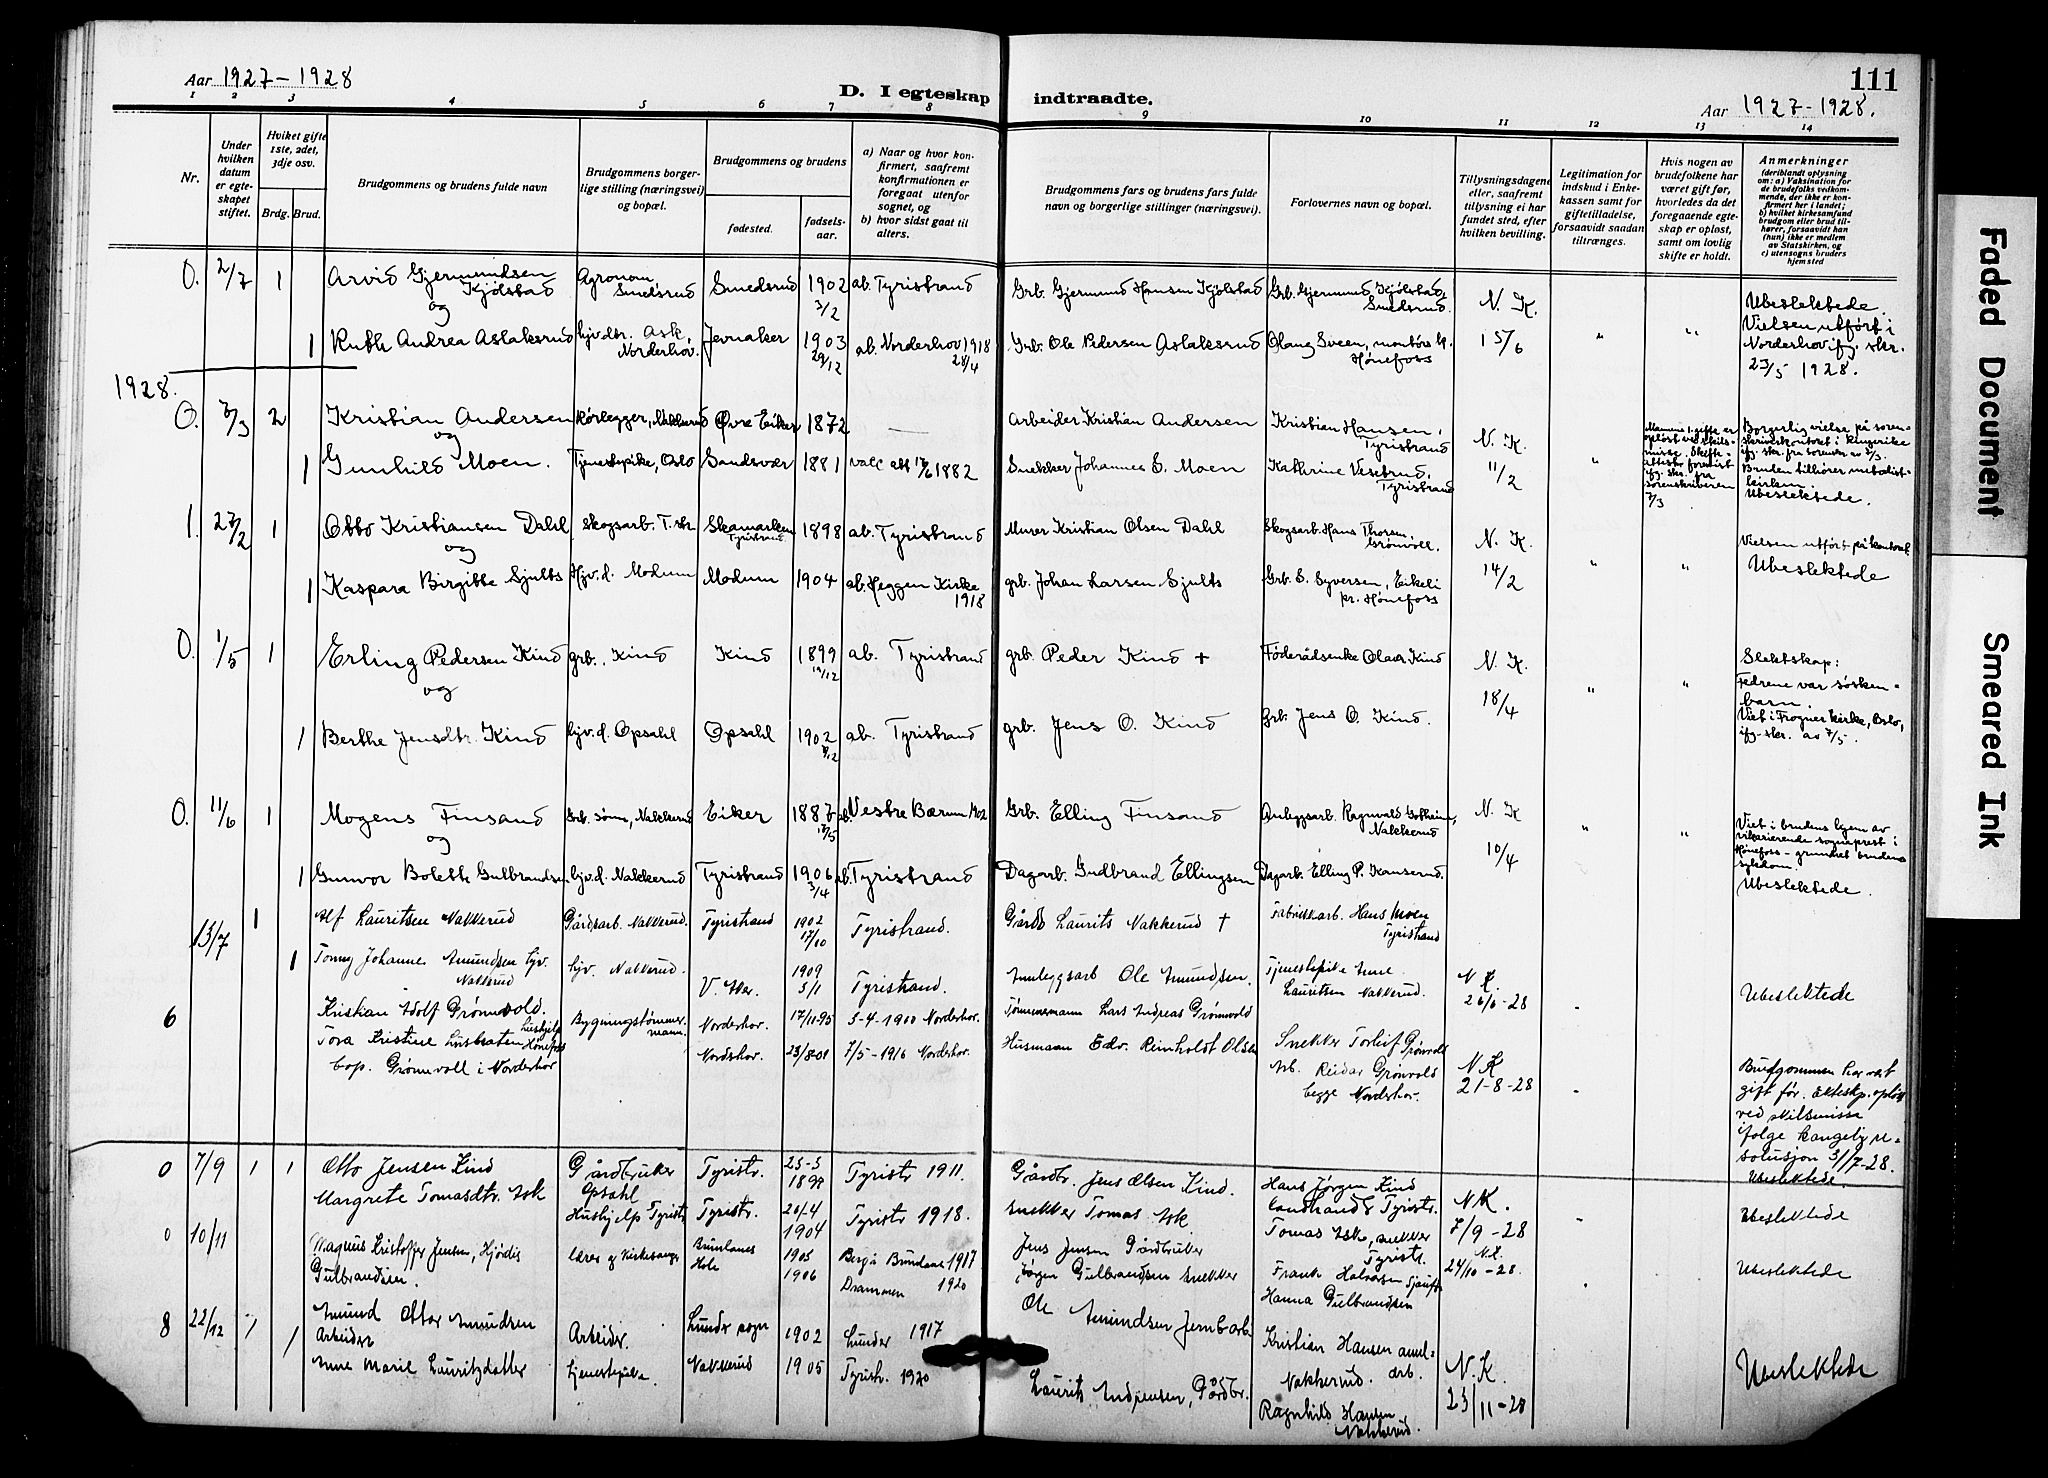 Aar 1927-1928
D. I egteskap indtraadte.
111
Aar 1927-1928.
1 2 3 4 5 6 7 8 9 10 11 12 13 14
Nr.
Under hvilken datum er egteskapet stiftet.
Hvilket gifte 1ste, 2det, 3dje osv.
Brdg. Brud.
Brudgommens og brudens fulde navn
Brudgommens borgerlige stilling (næringsvei) og bopæl.
Brudgommens og brudens
fødested.
fødselsaar.
a) Naar og hvor konfirmert, saafremt konfirmationen er foregaat utenfor sognet, og
b) hvor sidst gaat til alters.
Brudgommens fars og brudens fars fulde navn og borgerlige stillinger (næringsvei).
Forlovernes navn og bopæl.
Tillysningsdagene eller, saafremt tillysning ei har fundet sted, efter hvilken bevilling.
Legitimation for indskud i Enkekassen samt for giftetilladelse, forsaavidt saadan tiltrænges.
Hvis nogen av brudefolkene har været gift før, hvorledes da det foregaaende egteskap er opløst, samt om lovlig skifte er holdt.
Anmerkninger
(deriblandt oplysning om: a) Vaksination for de brudefolks vedkommende, der ikke er konfirmert her i landet;
b) hvilket kirkesamfund brudgom eller brud tilhører, forsaavidt han (hun) ikke er medlem av Statskirken, og
c) utensogns bruders hjemsted
0. 2/7 1 Arvid Gjermundsen Kjølstad Agronom, Smedsrud Smedsrud 1902 3/2 ab. Tyristrand Grb. Gjermund Hansen Kjølstad Grb. Gjermund Kjølstad, Smedsrud N. K. Ubeslektede.
og
1 Ruth Andrea Aslaksrud hjv.dtr. Ask, Norderhov. Jevnaker 1903 29/12 ab. Norderhov 1918 28/4 Grb. Ole Pedersen Aslaksrud Olaug Sveen, montørs h. Hønefoss 15/6 " " Vielsen utført i Norderhov ifg. skr. 23/5 1928.
1928.
0. 3/3 2 Kristian Andersen Rørlegger, Nakkerud Øvre Eiker 1872 — Arbeider Kristian Andersen Kristian Hansen, Tyristrand N. K.
og
1 Gunhild Moen. Tjenestepike, Oslo Sandsvær 1881 1882 Snekker Johannes S. Moen Kathrine Vesetrud, Tyristrand 11/2 "
Mannens 1. gifte er opløst ved skilsmisse. Skifteattest forevist ifg. skr. fra sorenskriveren 7/3
Borgerlig vielse på sorenskriverkontoret i Ringerike ifg. skr. fra sorenskr. av 3/3. Bruden tilhører metodistkirken. Ubeslektede.
1. 27/2 1 Otto Kristiansen Dahl Skogsarb. T.str. Skamarken Tyristrand 1898 ab. Tyristrand Murer Kristian Olsen Dahl Skogsarb. Hans Thorsen, Grønvoll. N. K. Vielsen utført på kontoret
og
1 Kaspara Birgitte Sjults Hjv. d. Modum Modum 1904 ab. Heggen Kirke 1918 grb. Johan Larsen Sjults Grb. S. Syversen, Eikeli pr. Hønefoss 14/2 " " Ubeslektede
0. 1/5 1 Erling Pedersen Kind grb., Kind Kind 1899 19/12 ab. Tyristrand grb. Peder Kind + Føderådsenke Olava Kind N. K. Slektskap:
og
18/4 " " Fedrene var søskenbarn.
1 Berthe Jensdtr. Kind hjv. d. Opsahl Opsahl 1902 ab. Tyristrand grb. Jens O. Kind grb. Jens O. Kind. Viet i Frogner kirke, Oslo, ifg. skr. av 7/5.
0. 11/6 1 Mogens Finsand Grb. sønn, Nakkerud Eiker 1887 17/5 ab. Vestre Bærum 1902 Grb. Elling Finsand Anleggsarb. Ragnvald Gotheim, Nakkerud N. K
og
" " Viet i brudens hjem av vikarierende sogneprest i Hønefoss - grunnet brudens sykdom.
1 Gunvor Bolette Gulbrandsen hjv.d. Nakkerud Tyristrand 1906 3/4 ab. Tyristrand Dagarb. Gudbrand Ellingsen Dagarb. Elling P. Hanserud. 10/4 Ubeslektede.
13/7 1 Alf Lauritsen Nakkerud Gårdsarb. Nakkerud. Tyristrand 1902 17/10 Tyristrand. Gårdb Laurits Nakkerud + Fabrikkarb. Hans Moen Tyristrand
1 Tonny Johanne Amundsen hjv. Nakkerud hjv. Nakkerud. V. Aker. 1909 3/1 Tyristrand. Anleggsarb Ole Amundsen. Tjenestepike Anne Lauritsen Nakkerud. N. K. 26/6-28 Ubeslektede
6 Kristian Adolf Grønvold. Bygningstømmermann. Norderhov. 17/11-95 3-4-1910 Norderhov. Tømmermann Lars Andreas Grønvold Snekker Torleif Grønvold
Tora Kristine Lusbraten hushjelp Hønefoss Norderhov. 23/8-01 7/5-1916 Norderhov. Husmann Edv. Reinholdt Olsen Arb. Reidar Grønvold begge Norderhov. N K 21-8-28
bop. Grønvoll i Norderhov
Brudgommen har vært gift før. Ekteskp. opløst ved skilsmisse ifølge kongelig resolusjon 31/7-28. Ubeslektede.
0 7/9 1 1 Otto Jensen Kind Gårdbruker Opsahl Tyristr. 23-3 1897 Tyristr 1911. Gårdbr. Jens Olsen Kind. Hans Jørgen Kind Landhandl. Tyristr. N K.
Margrete Tomasdtr. Ask Hushjelp Tyristr Tyristr. 26-4 1904 Tyristr 1918. Snekker Tomas Ask Tomas Ask, snekker Tyristr. 7/9-28 Ubeslektede
0 10/11 Magnus Kristoffer Jensen, Hjødis Gulbrandsen. Lærer og Kirkesanger Bundanes Hole 1905 1906 Bergs Bundanes 1917 Drammen 1920 Jens Jensen Gårdbruker Jørgen Gulbrandsen Snekker Frank Halvorsen Hanna Gulbrandsen N.K. 24/10-28. Ubeslektede
8 22/12 1 Amund Ottar Amundsen Arbeider Arbeider. Lunder sogn 1902 Lunder 1917 Ole Amundsen Jernb arb. Kristian Hansen anl.arb. Nakkerud. N.K.
1 Anne Marie Lauritzdatter tjenestepike. Nakkerud 1905 Tyristr. 1920 Laurits Andreasen, Gårdbr. Ragnhild Hansen Nakkerud. 23/11-28 Ubeslektede
Faded Document
Smeared Ink